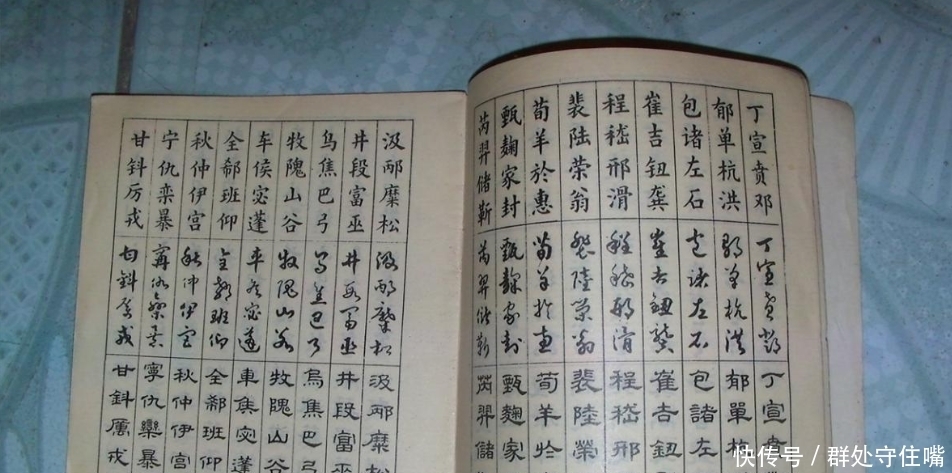 丁宣贲邓
郁单杭洪
包诸左石
崔吉钮龚
程嵇邢滑
裴陆荣翁
荀羊於惠
甄麹家封
芮羿储靳
丁宣賁鄧
郁單杭洪
包諸左石
崔吉鈕龔
程嵇邢滑
裴陸榮翁
荀羊於惠
甄麹家封
芮羿儲靳
丁宣賁
郁單杭
包諸左
崔吉鈕
程嵇邢
裴陸榮
荀羊於
甄麹家
芮羿儲
汲邴糜松
井段富巫
乌焦巴弓
牧隗山谷
车侯宓蓬
全郗班仰
秋仲伊宫
宁仇栾暴
甘钭厉戎
汲邴糜松
井段富巫
烏焦巴弓
牧隗山谷
車侯宓蓬
全郗班仰
秋仲伊宮
寧仇欒暴
甘鈄厲戎
汲邴糜松
井段富巫
烏焦巴弓
牧隗山谷
車侯宓蓬
全郗班仰
秋仲伊宮
寧仇欒暴
甘鈄厲戎
快传号/群处守住嘴